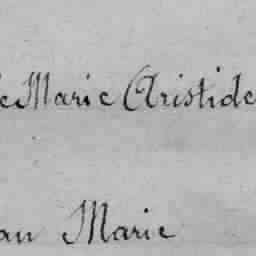 e Marie Aristide
an Marie